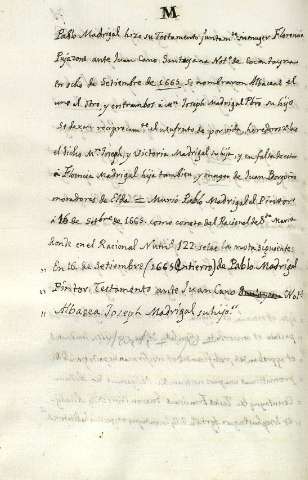 M
Pablo Madrigal hizo su Testamento juntamte. su muger Florencia
ante Juan Cano Notº. de
en ocho de Setiembre de 1665. se nombraron Albaceas el
uno al otro, y entrambos à Mn. Joseph Madrigal Pbro. su hijo.
Se dexan reciprocamte. el usufruto de por vida, herederos à los
el dicho Mn. Joseph, y Victoria Madrigal su hija, y en falta
à Madrigal hija tambien y muger de Juan
moradores de Elda = Murió Pablo Madrigal el Pintor
à 16 de Setbre. de 1665. como consta del Racional de Sta. Maria
donde en el Racional Num. 122 se lee la nota siguiente:
" En 16 de Setiembre (1665) Entierro de Pablo Madrigal
" Pintor, Testamento ante Juan Cano Notº.
" Albacea Joseph Madrigal su hijo."